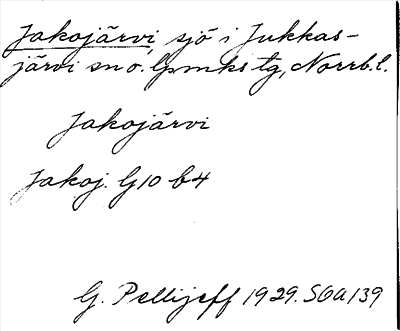 Jakojärvi, sjö i Jukkas-
järvi sn o. lpmks tg, Norrb.l.
Jakojärvi
Jakoj. G10 b4
G. Pellijeff 1929. SOA 139